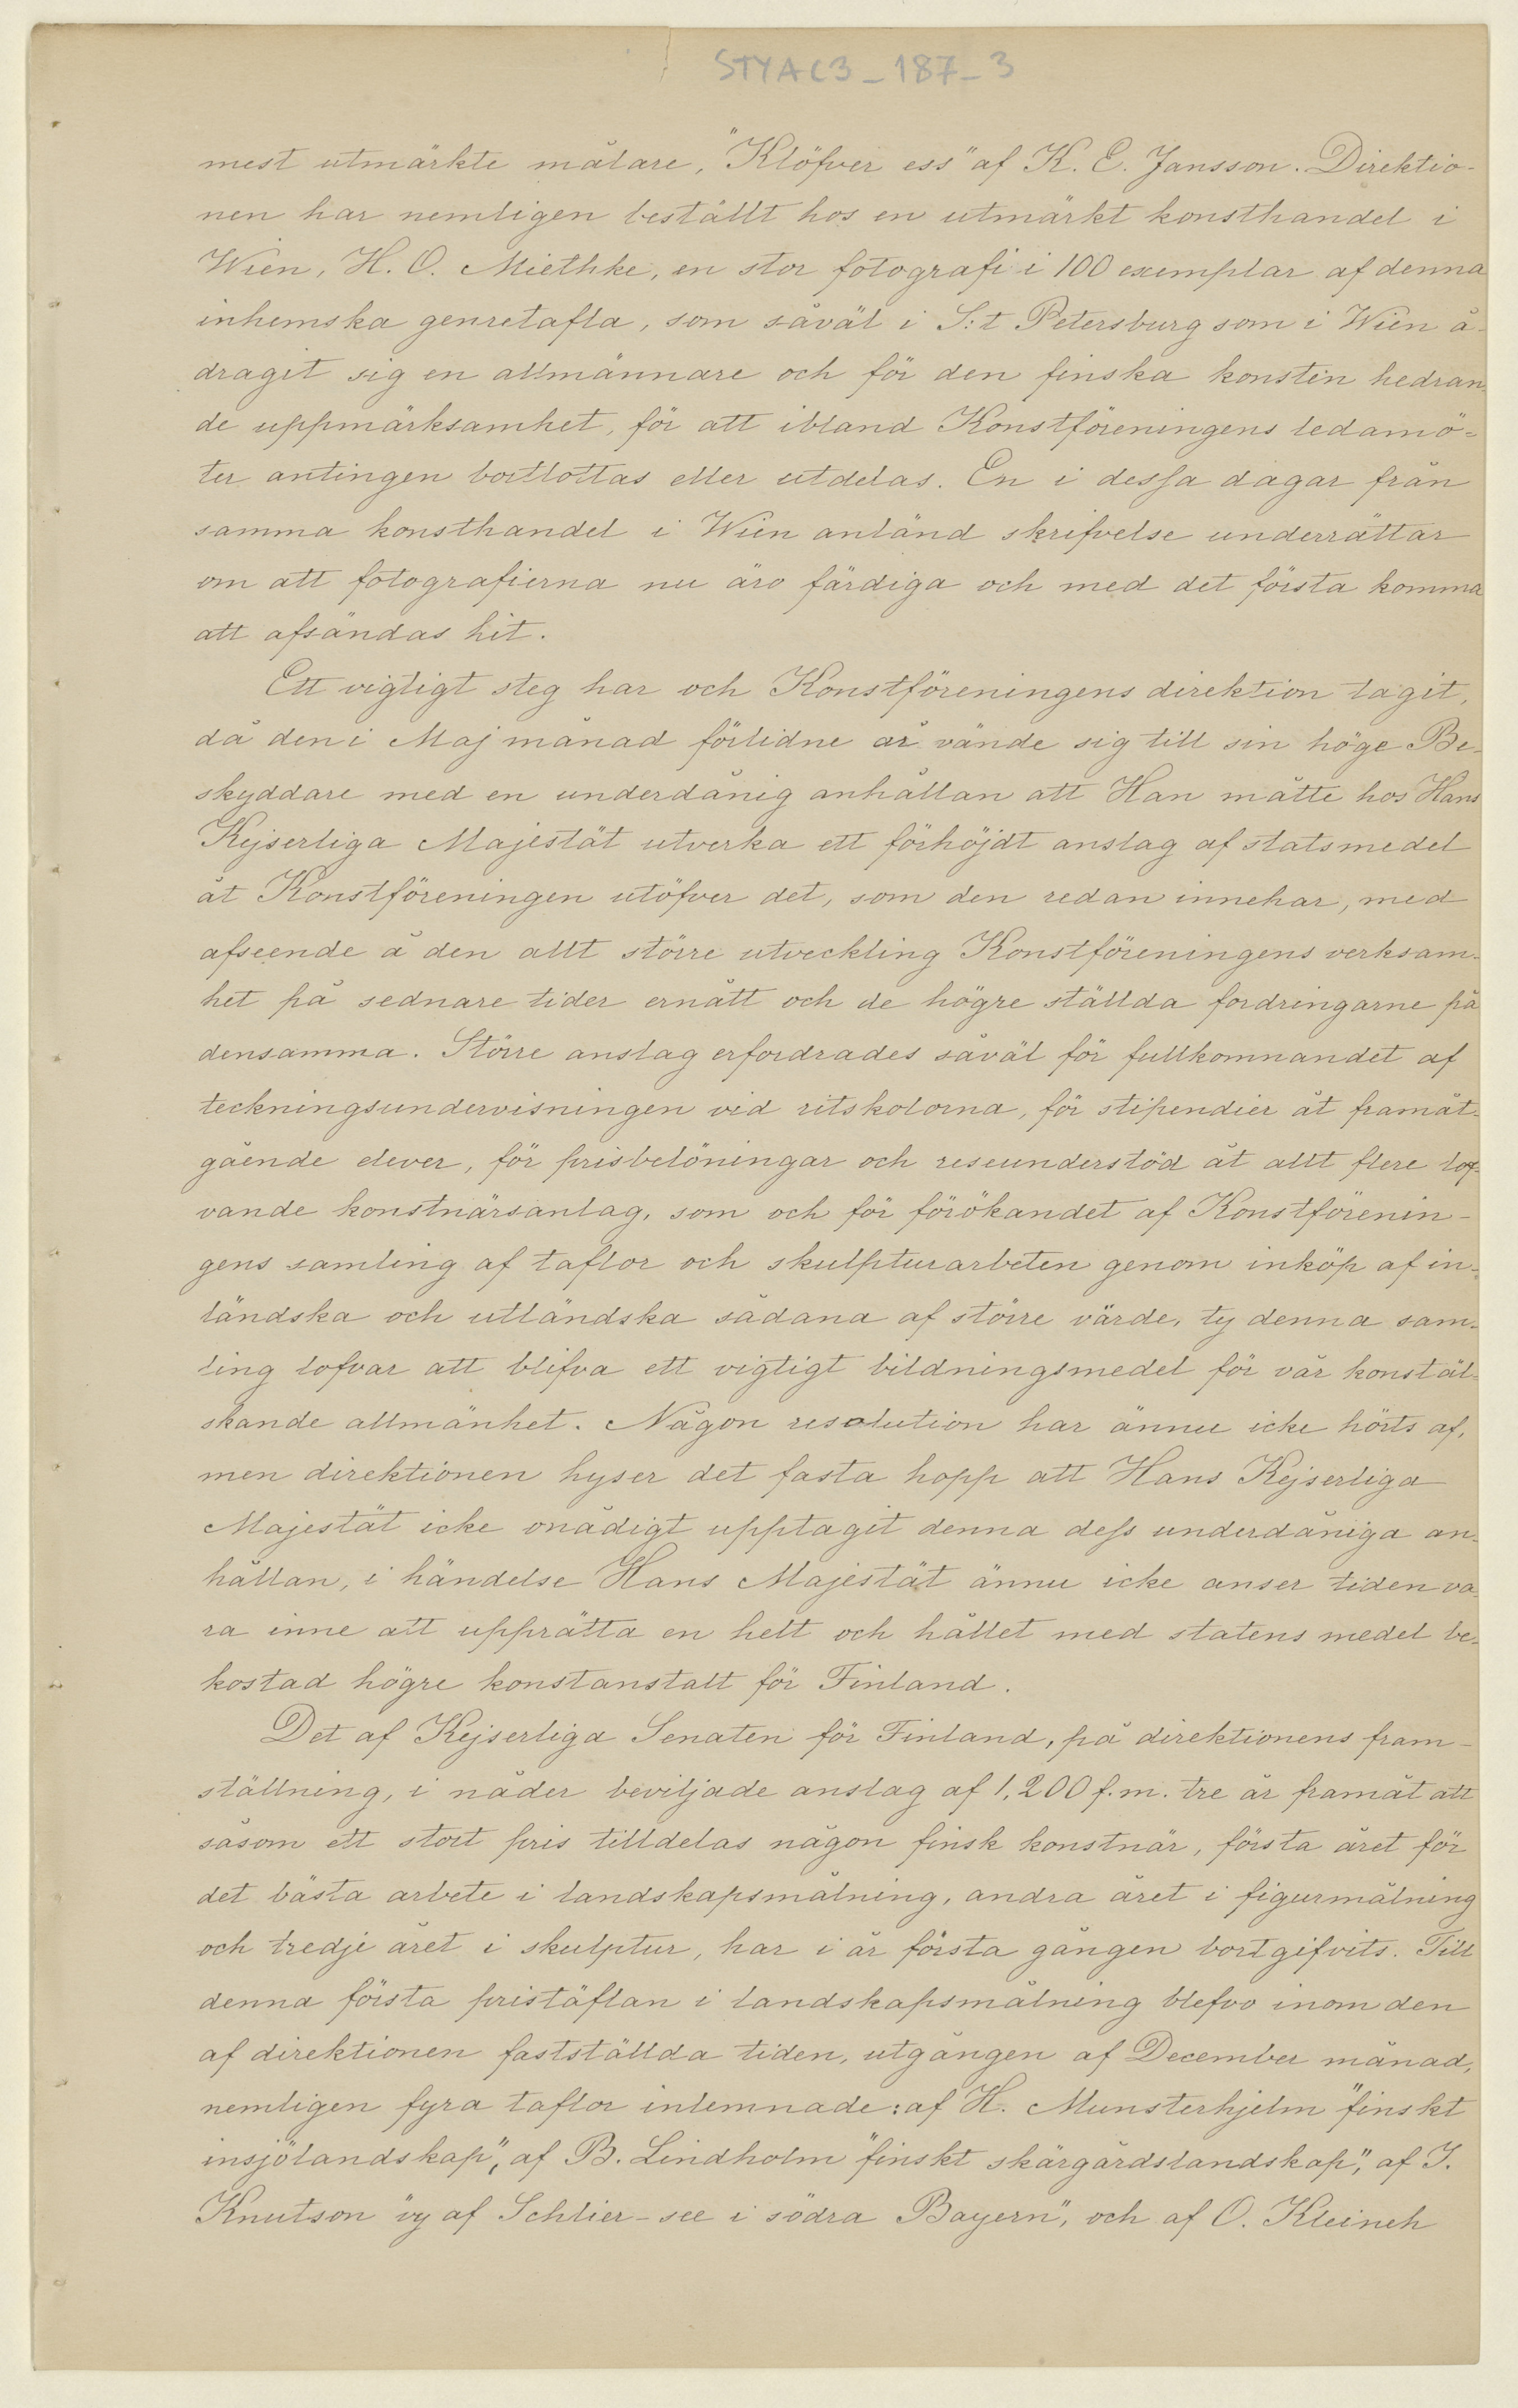 STYAC3_187_3
mest utmärkte målare, "Klöfver ess" af K. E. Jansson. Direktio-
nen har nemligen beställt hos en utmärkt konsthandel i
Wien, H. O. Miethke, en stor fotografi i 100 exemplar af denna
inhemska genretafla, som såväl i S:t Petersburg som i Wien å-
dragit sig en allmännare och för den finska konsten hedran-
de uppmärksamhet, för att ibland Konstföreningens ledamö-
ter antingen bortlottas eller utdelas. En i dessa dagar från
samma konsthandel i Wien anländ skrifvelse underrättar
om att fotografierna nu äro färdiga och med det första komma
att afsändas hit.
Ett vigtigt steg har och Konstföreningens direktion tagit,
då den i Maj månad förlidne år vände sig till sin höge Be-
skyddare med en underdånig anhållan att Han måtte hos Hans
Kejserliga Majestät utverka ett förhöjdt anslag af statsmedel
åt Konstföreningen utöfver det, som den redan innehar, med
afseende å den allt större utveckling Konstföreningens verksam-
het på sednare tider ernått och de högre ställda fordringarne på
densamma. Större anslag erfordrades såväl för fullkomnandet af
teckningsundervisningen vid ritskolorna, för stipendier åt framåt-
gående elever, för prisbelöningar och reseunderstöd åt allt flere lof-
vande konstnärsanlag, som och för förökandet af Konstförenin-
gens samling af taflor och skulpturarbeten genom inköp af in-
ländska och utländska sådana af större värde, ty denna sam-
ling lofvar att blifva ett vigtigt bildningsmedel för vår konstäl-
skande allmänhet. Någon resolution har ännu icke hörts af,
men direktionen hyser det fasta hopp att Hans Kejserliga
Majestät icke onådigt upptagit denna dess underdåniga an-
hållan, i händelse Hans Majestät ännu icke anser tiden va-
ra inne att upprätta en helt och hållet med statens medel be-
kostad högre konstanstalt för Finland.
Det af Kejserliga Senaten för Finland, på direktionens fram-
ställning, i nåder beviljade anslag af 1,200 f.m. tre år framåt att
såsom ett stort pris tilldelas någon finsk konstnär, första året för
det bästa arbete i landskapsmålning, andra året i figurmålning
och tredje året i skulptur, har i år första gången bortgifvits. Till
denna första pristäflan i landskapsmålning blefvo inom den
af direktionen fastställda tiden, utgången af December månad,
nemligen fyra taflor inlemnade: af H. Munsterhjelm "finskt
insjölandskap", af B. Lindholm "finskt skärgårdslandskap", af J.
Knutson "vy af Schlier-see i södra Bayern", och af O. Kleineh